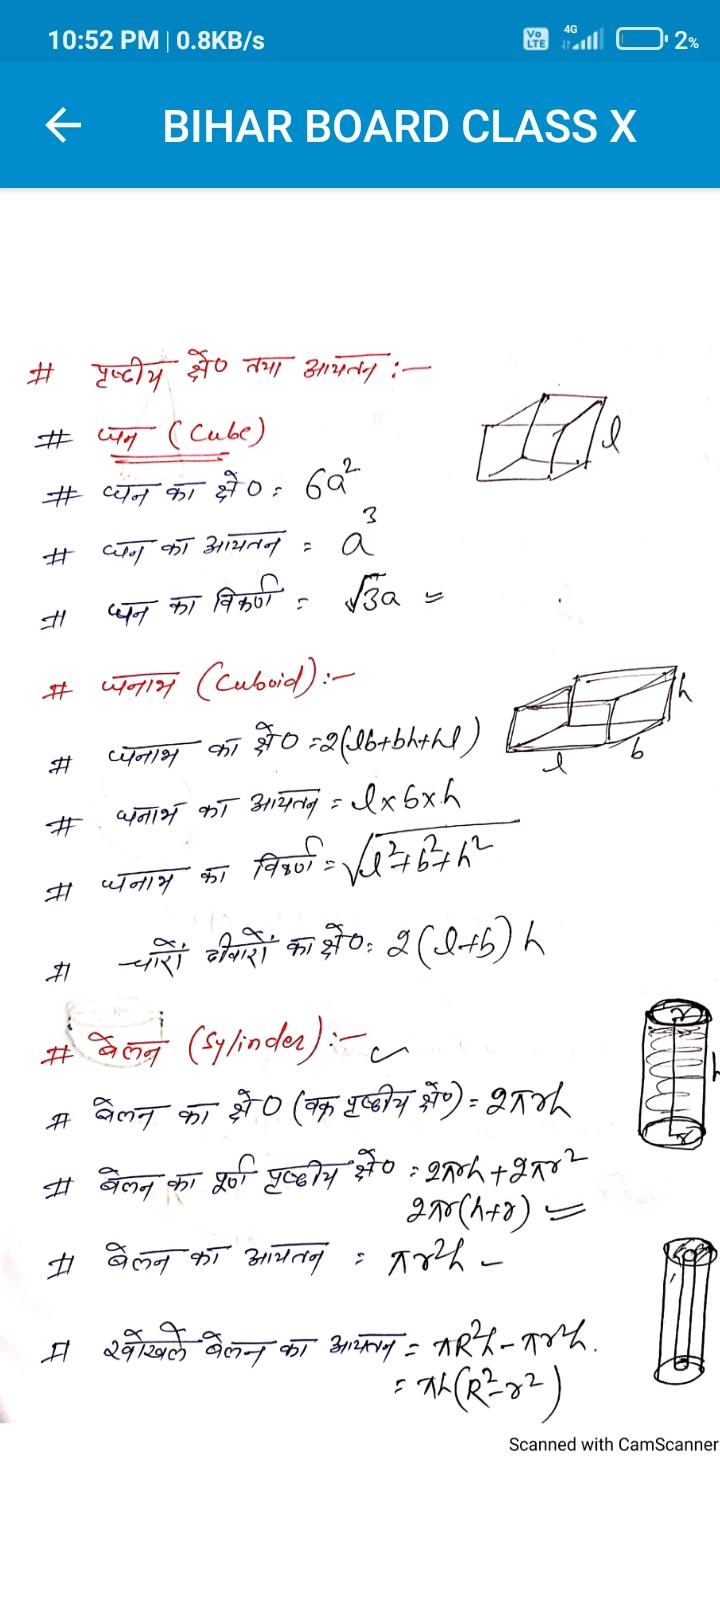 10:52 PM | 0.8KB/s Vo LTE 4G 2%
BIHAR BOARD CLASS X
# पृष्ठीय क्षे० तथा आयतन :-
# घन (Cube)
l
# घन का क्षे० = 6a²
# घन का आयतन = a³
# घन का विकर्ण = √3a =
# घनाभ (Cuboid) :-
h
# घनाभ का क्षे० = 2(lb+bh+hl)
l b
# घनाभ का आयतन = l×b×h
# घनाभ का विकर्ण = √l²+b²+h²
# चारों दीवारों का क्षे० = 2(l+b)h
# बेलन (Sylinder) :-
r
h
# बेलन का क्षे० (वक्र पृष्ठीय क्षे०) = 2πrh
# बेलन का पूर्ण पृष्ठीय क्षे० = 2πrh+2πr²
2πr(h+r) =
# बेलन का आयतन = πr²h -
# खोखले बेलन का आयतन = πR²h-πr²h.
= πh(R²-r²)
Scanned with CamScanner